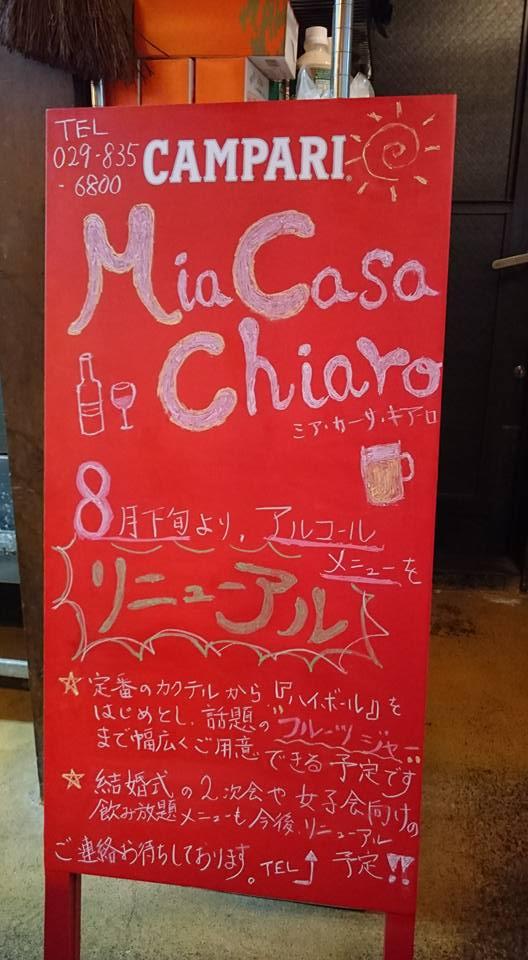 TEL
029-835
-6800
CAMPARI®
Mia Casa
Chiaro
ミア・カーサ・キアロ
8月下旬より、アルコール
メニューを
リニューアル
☆ 定番のカクテルから『ハイボール』を
はじめとし、話題の"フルーツジャー"
まで幅広くご用意できる予定です
☆ 結婚式の2次会や女子会向けの
飲み放題メニューも今後、リニューアル
予定!!
ご連絡お待ちしております。TEL↑